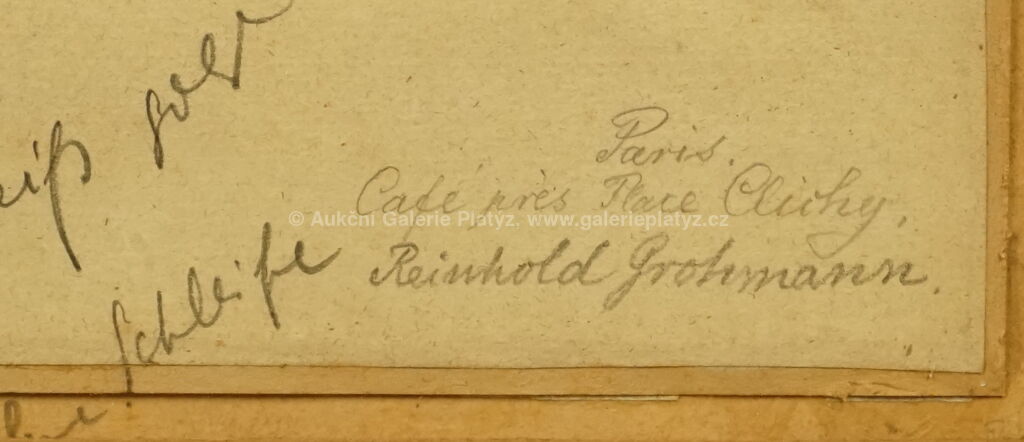 gold
Paris.
Café près Place Clichy,
© Aukční Galerie Platýz, www.galerieplatyz.cz
Schleife
Reinhold Grohmann.